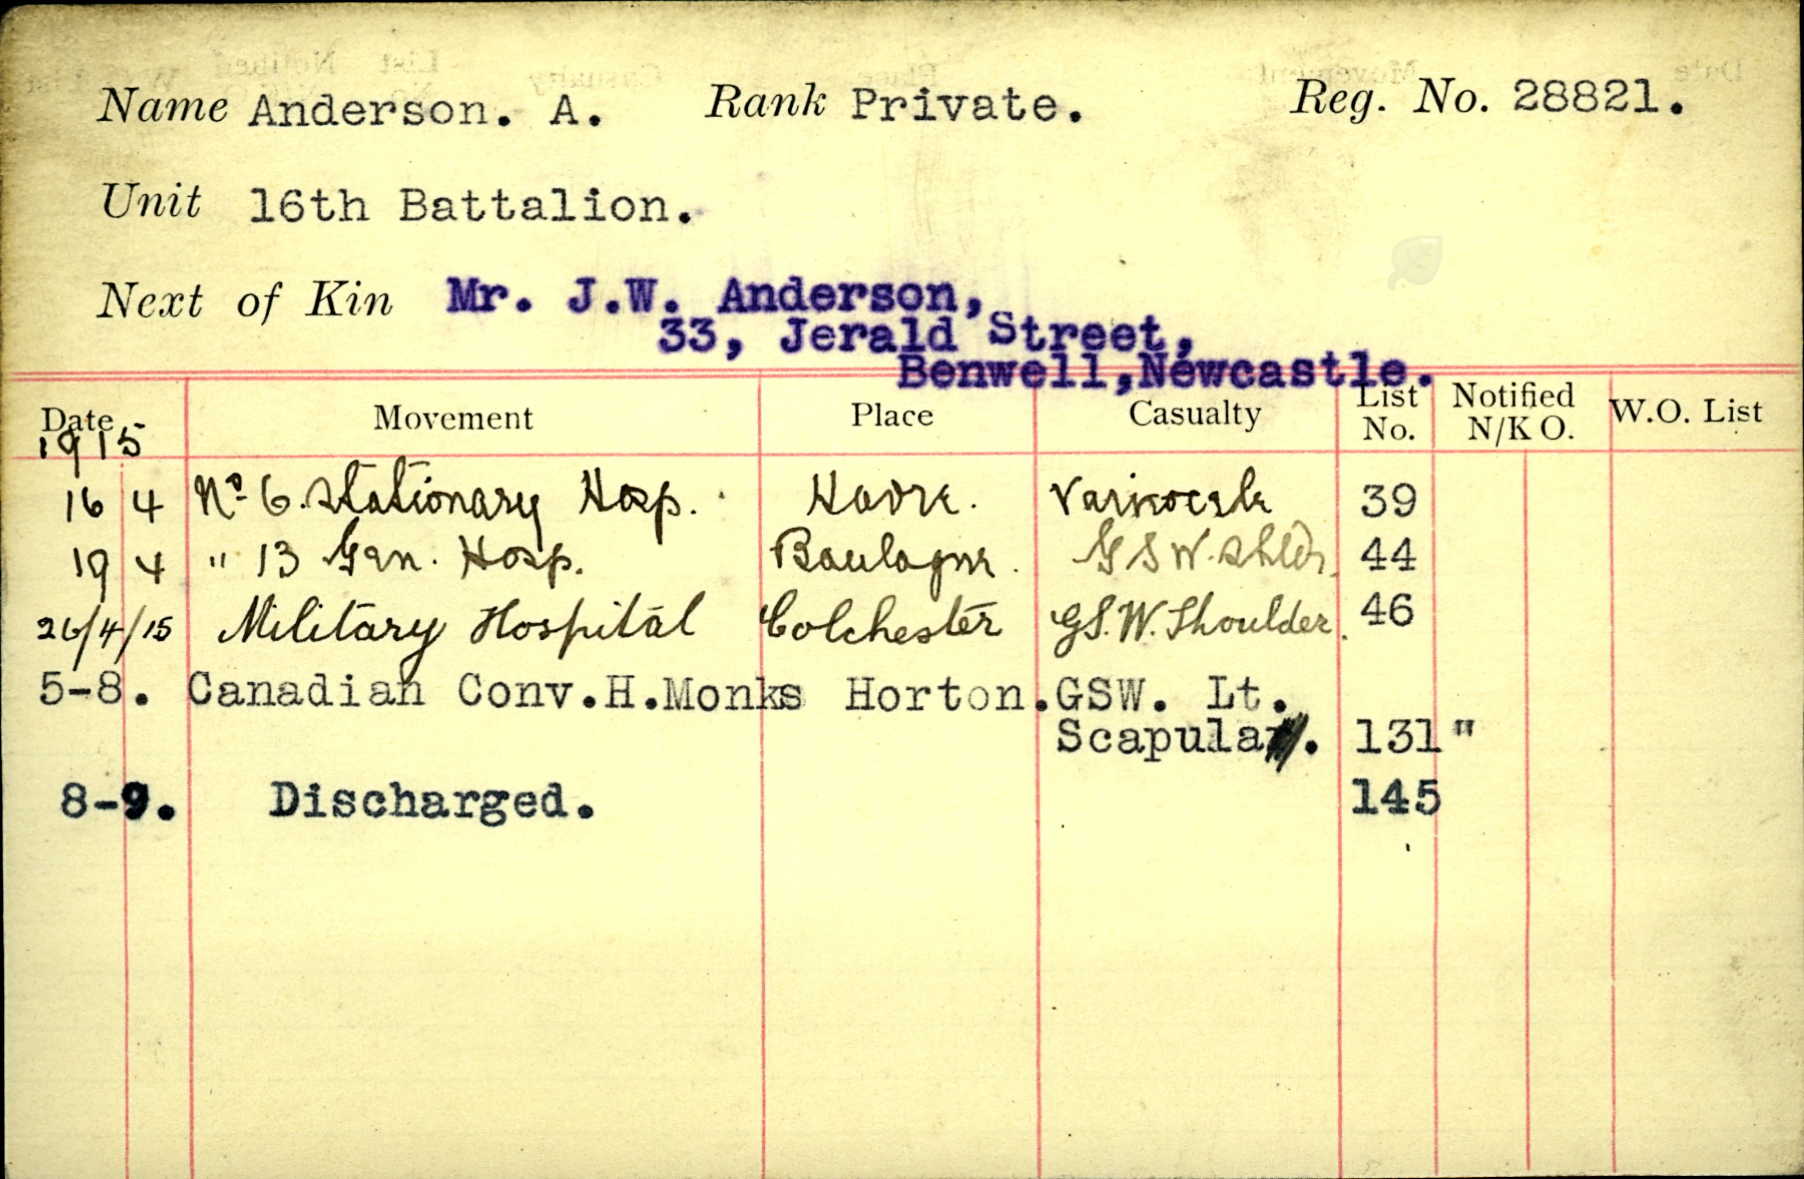 Name Anderson. A. Rank Private. Reg. No. 28821.
Unit 16th Battalion.
Next of Kin Mr. J.W. Anderson,
33, Jerald Street,
Benwell, Newcastle.
Date Movement Place Casualty List No. Notified N/K O. W.O. List
1915
16 4 No 6. Stationary Hosp. Havre. Varicocele 39
19 4 " 13 Gen. Hosp. Boulogne. G S W. Shldr. 44
26/4/15 Military Hospital Colchester G.S.W. Shoulder. 46
5-8. Canadian Conv.H.Monks Horton. GSW. Lt.
Scapula. 131 "
8-9. Discharged. 145